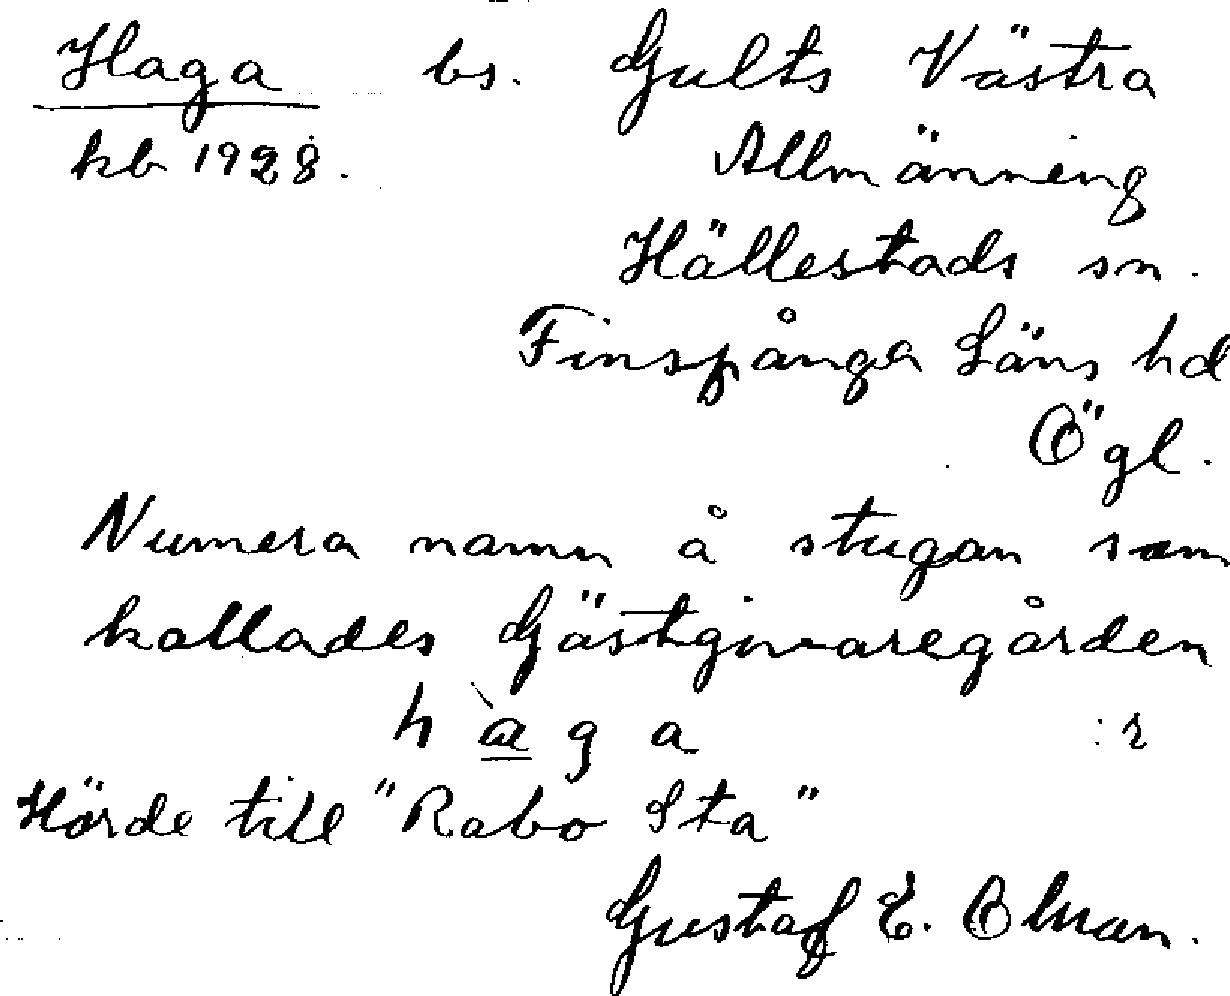 Haga bs. Gults Västra
kb 1928. Allmänning
Hällestads sn.
Finspånga Läns hd
Ögl.
Numera namn å stugan som
kallades Gästgivaregården
h à g a :r
Hörde till "Rabo Sta"
Gustaf E. Olman.